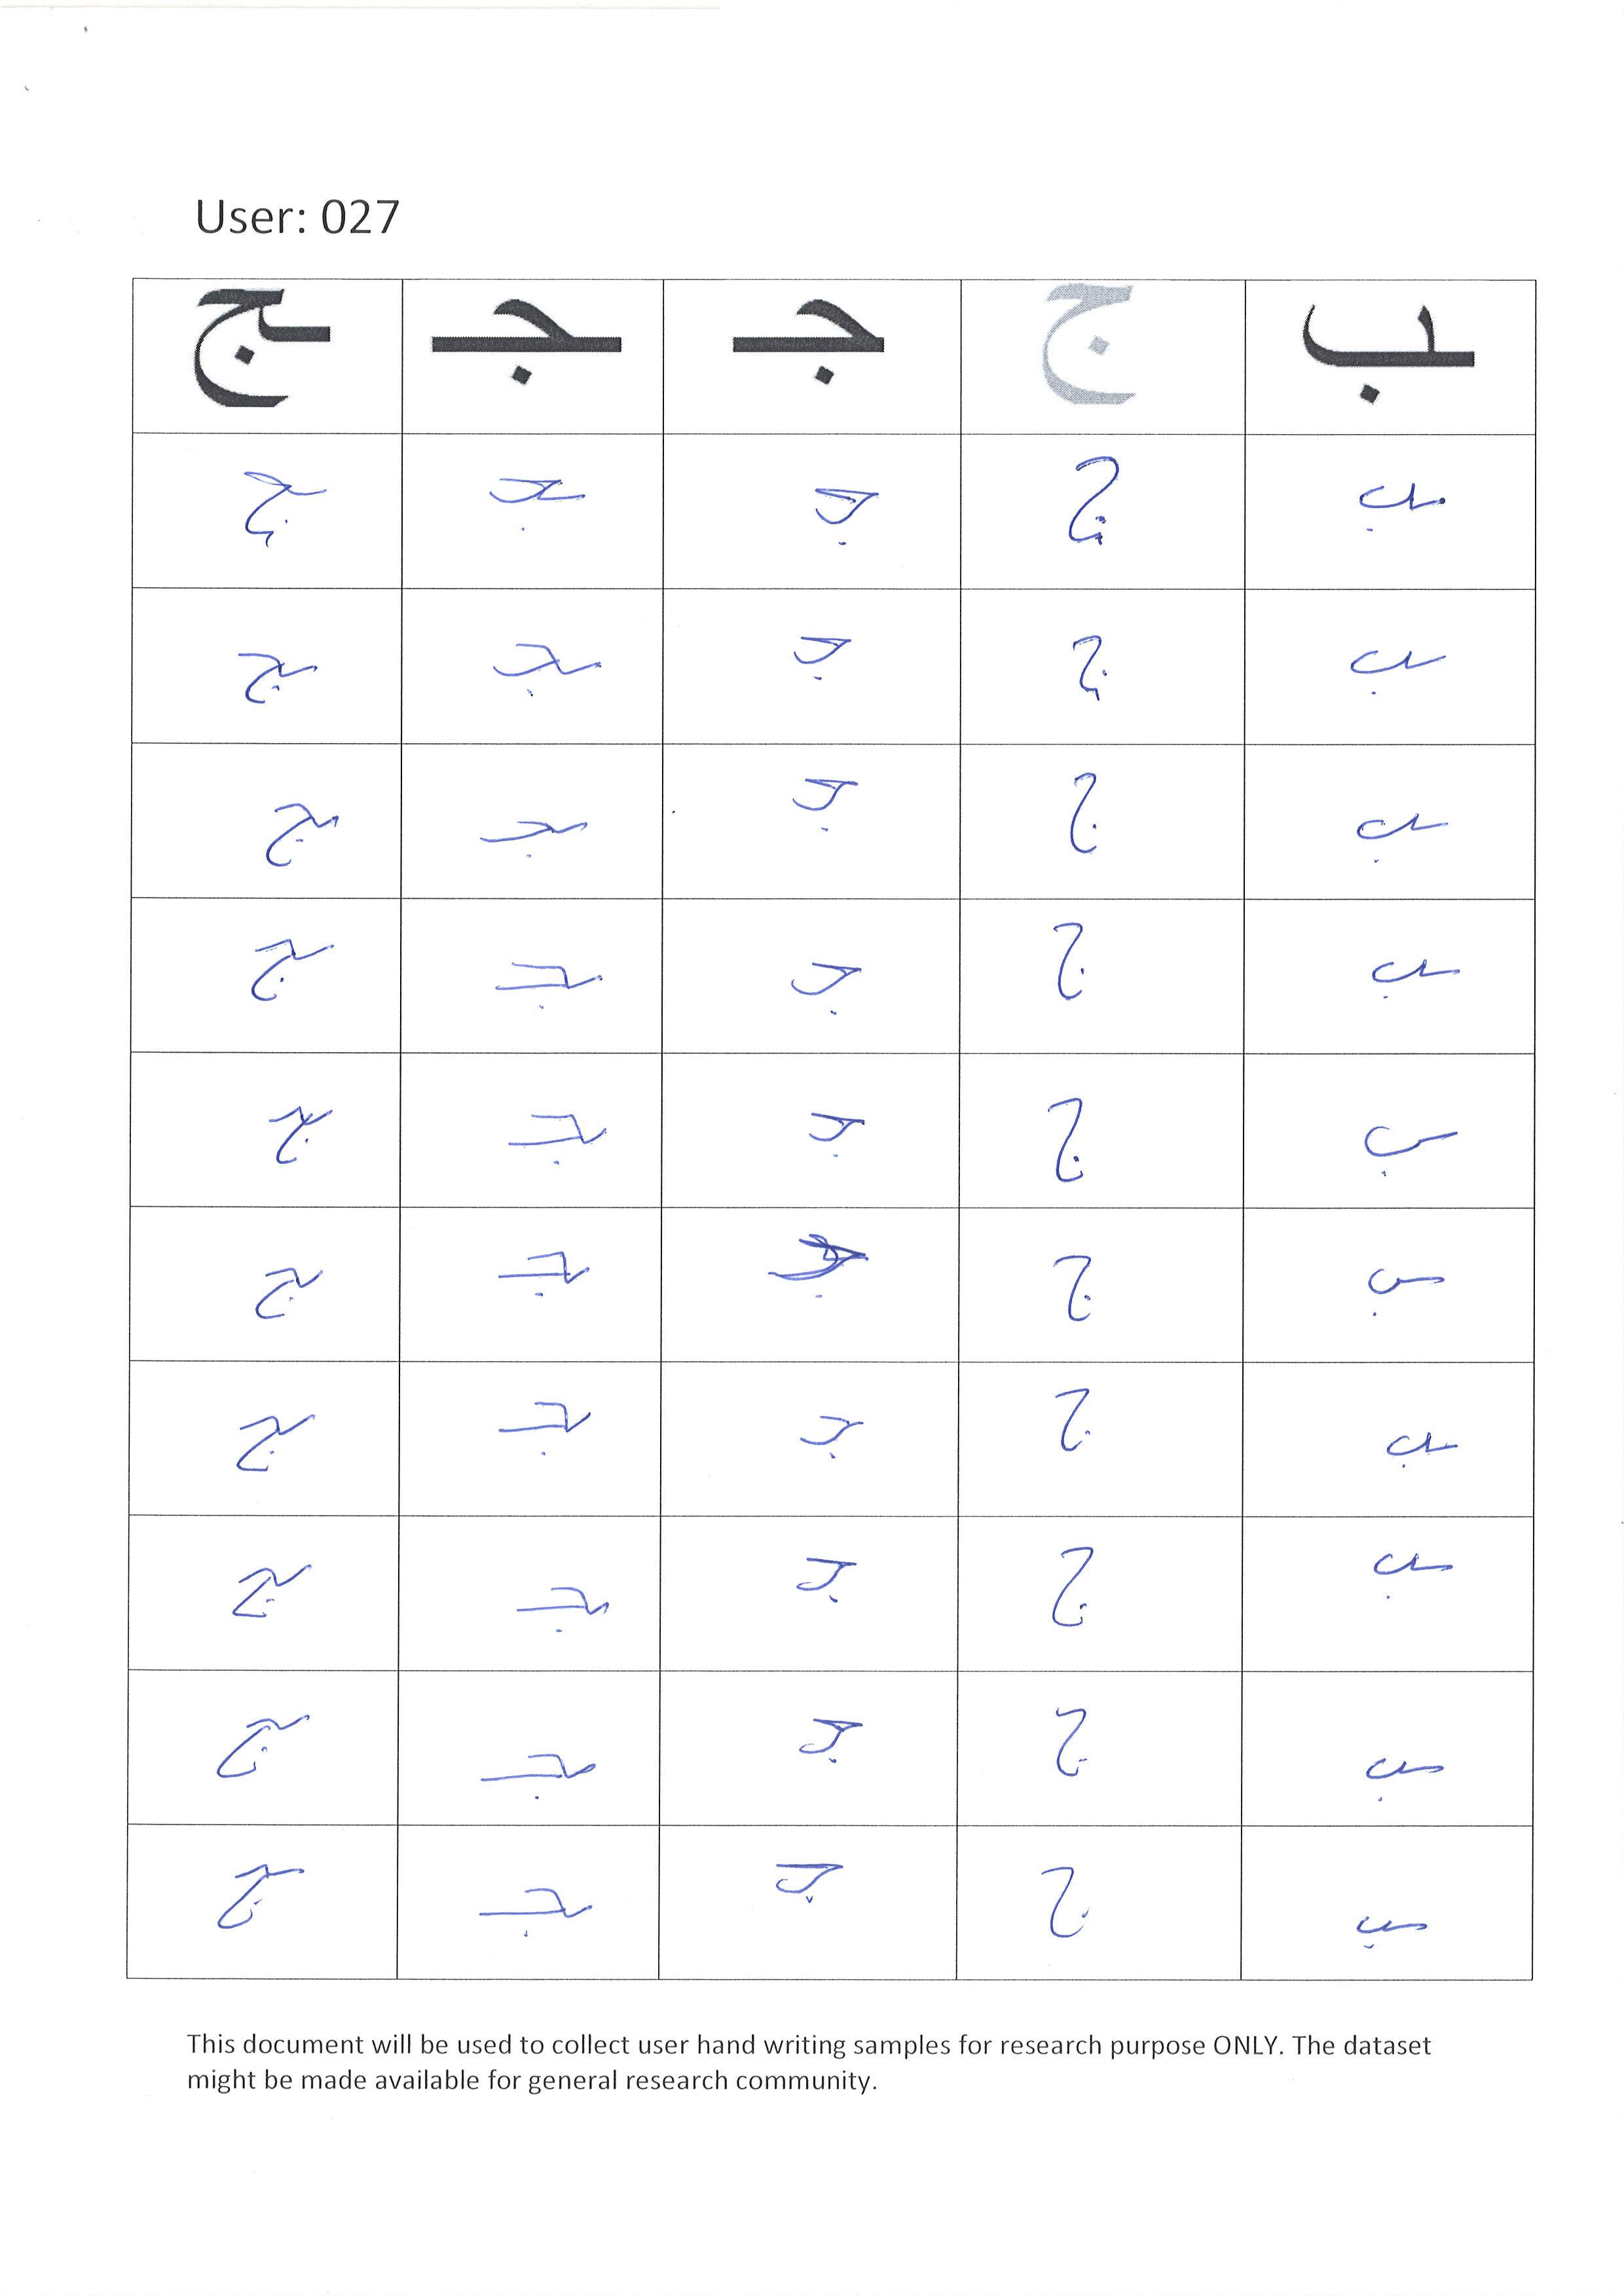 User: 027
ـب ج جـ ـجـ ـج
ـب ج جـ ـجـ ـج
ـب ج جـ ـجـ ـج
ـب ج جـ ـجـ ـج
ـب ج جـ ـجـ ـج
ـب ج جـ ـجـ ـج
ـب ج جـ ـجـ ـج
ـب ج جـ ـجـ ـج
ـب ج جـ ـجـ ـج
ـب ج جـ ـجـ ـج
ـب ج جـ ـجـ ـج
This document will be used to collect user hand writing samples for research purpose ONLY. The dataset
might be made available for general research community.